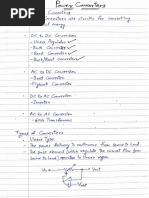 Power Converters
Converters are circuits for converting
of energy.
• DC to DC Converters
- Linear Regulator
- Buck Converter
- Boost Converter
- Buck/Boost Converter
• AC to DC Converters
- Boost Converter
- Flyback Converter
• DC to AC Converters
- Inverter
• AC to AC Converters
Types of Converters
- Linear Type
- The power delivery is continuous from source to load.
- The
element
regulate the current flow from
source to load operates in linear region.
Vin
Vout